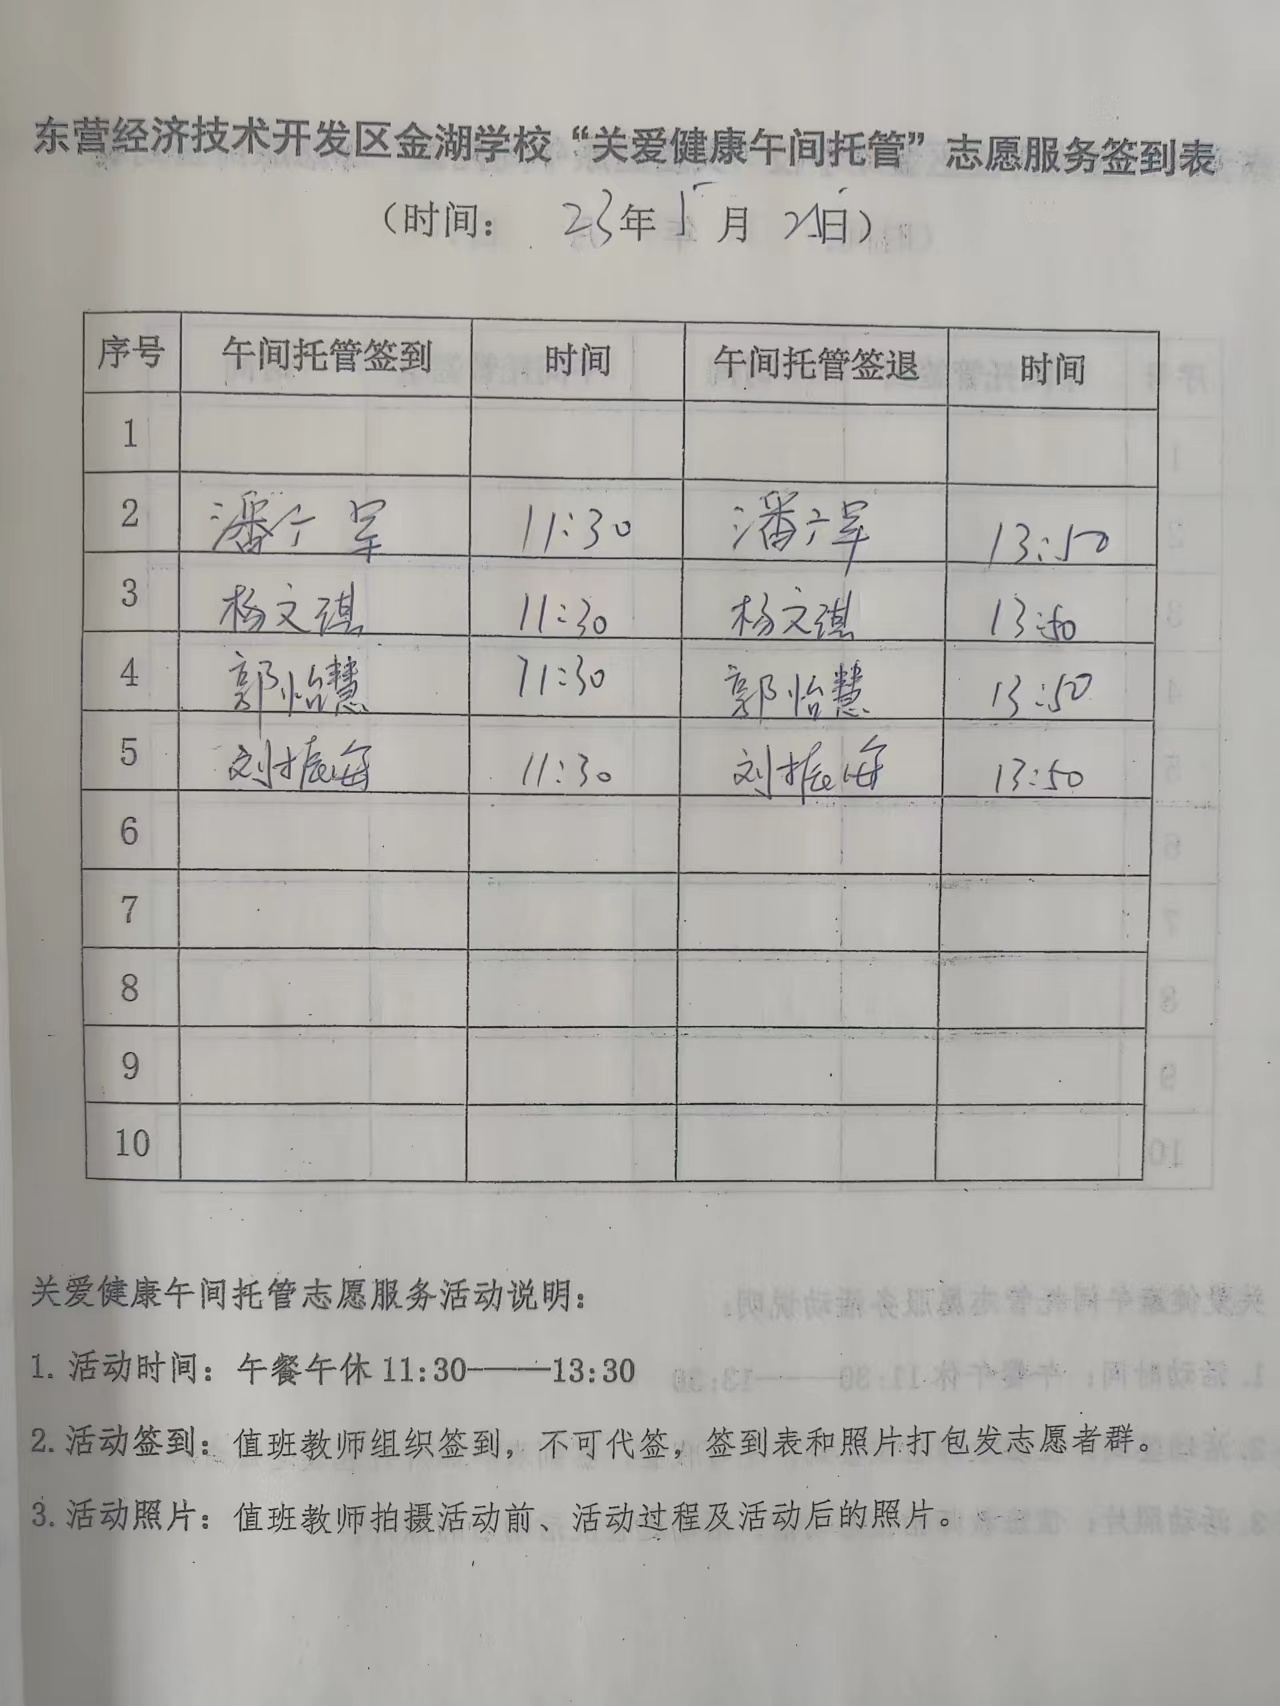 东营经济技术开发区金湖学校“关爱健康午间托管”志愿服务签到表
（时间： 23年 5 月 日）
序号 午间托管签到 时间 午间托管签退 时间
1
2 潘广军 11:30 潘广军 13:50
3 杨文祺 11:30 杨文祺 13:50
4 郭怡慧 11:30 郭怡慧 13:50
5 刘振海 11:30 刘振海 13:50
6
7
8
9
10
关爱健康午间托管志愿服务活动说明：
1. 活动时间：午餐午休 11:30——13:30
2. 活动签到：值班教师组织签到，不可代签，签到表和照片打包发志愿者群。
3. 活动照片：值班教师拍摄活动前、活动过程及活动后的照片。